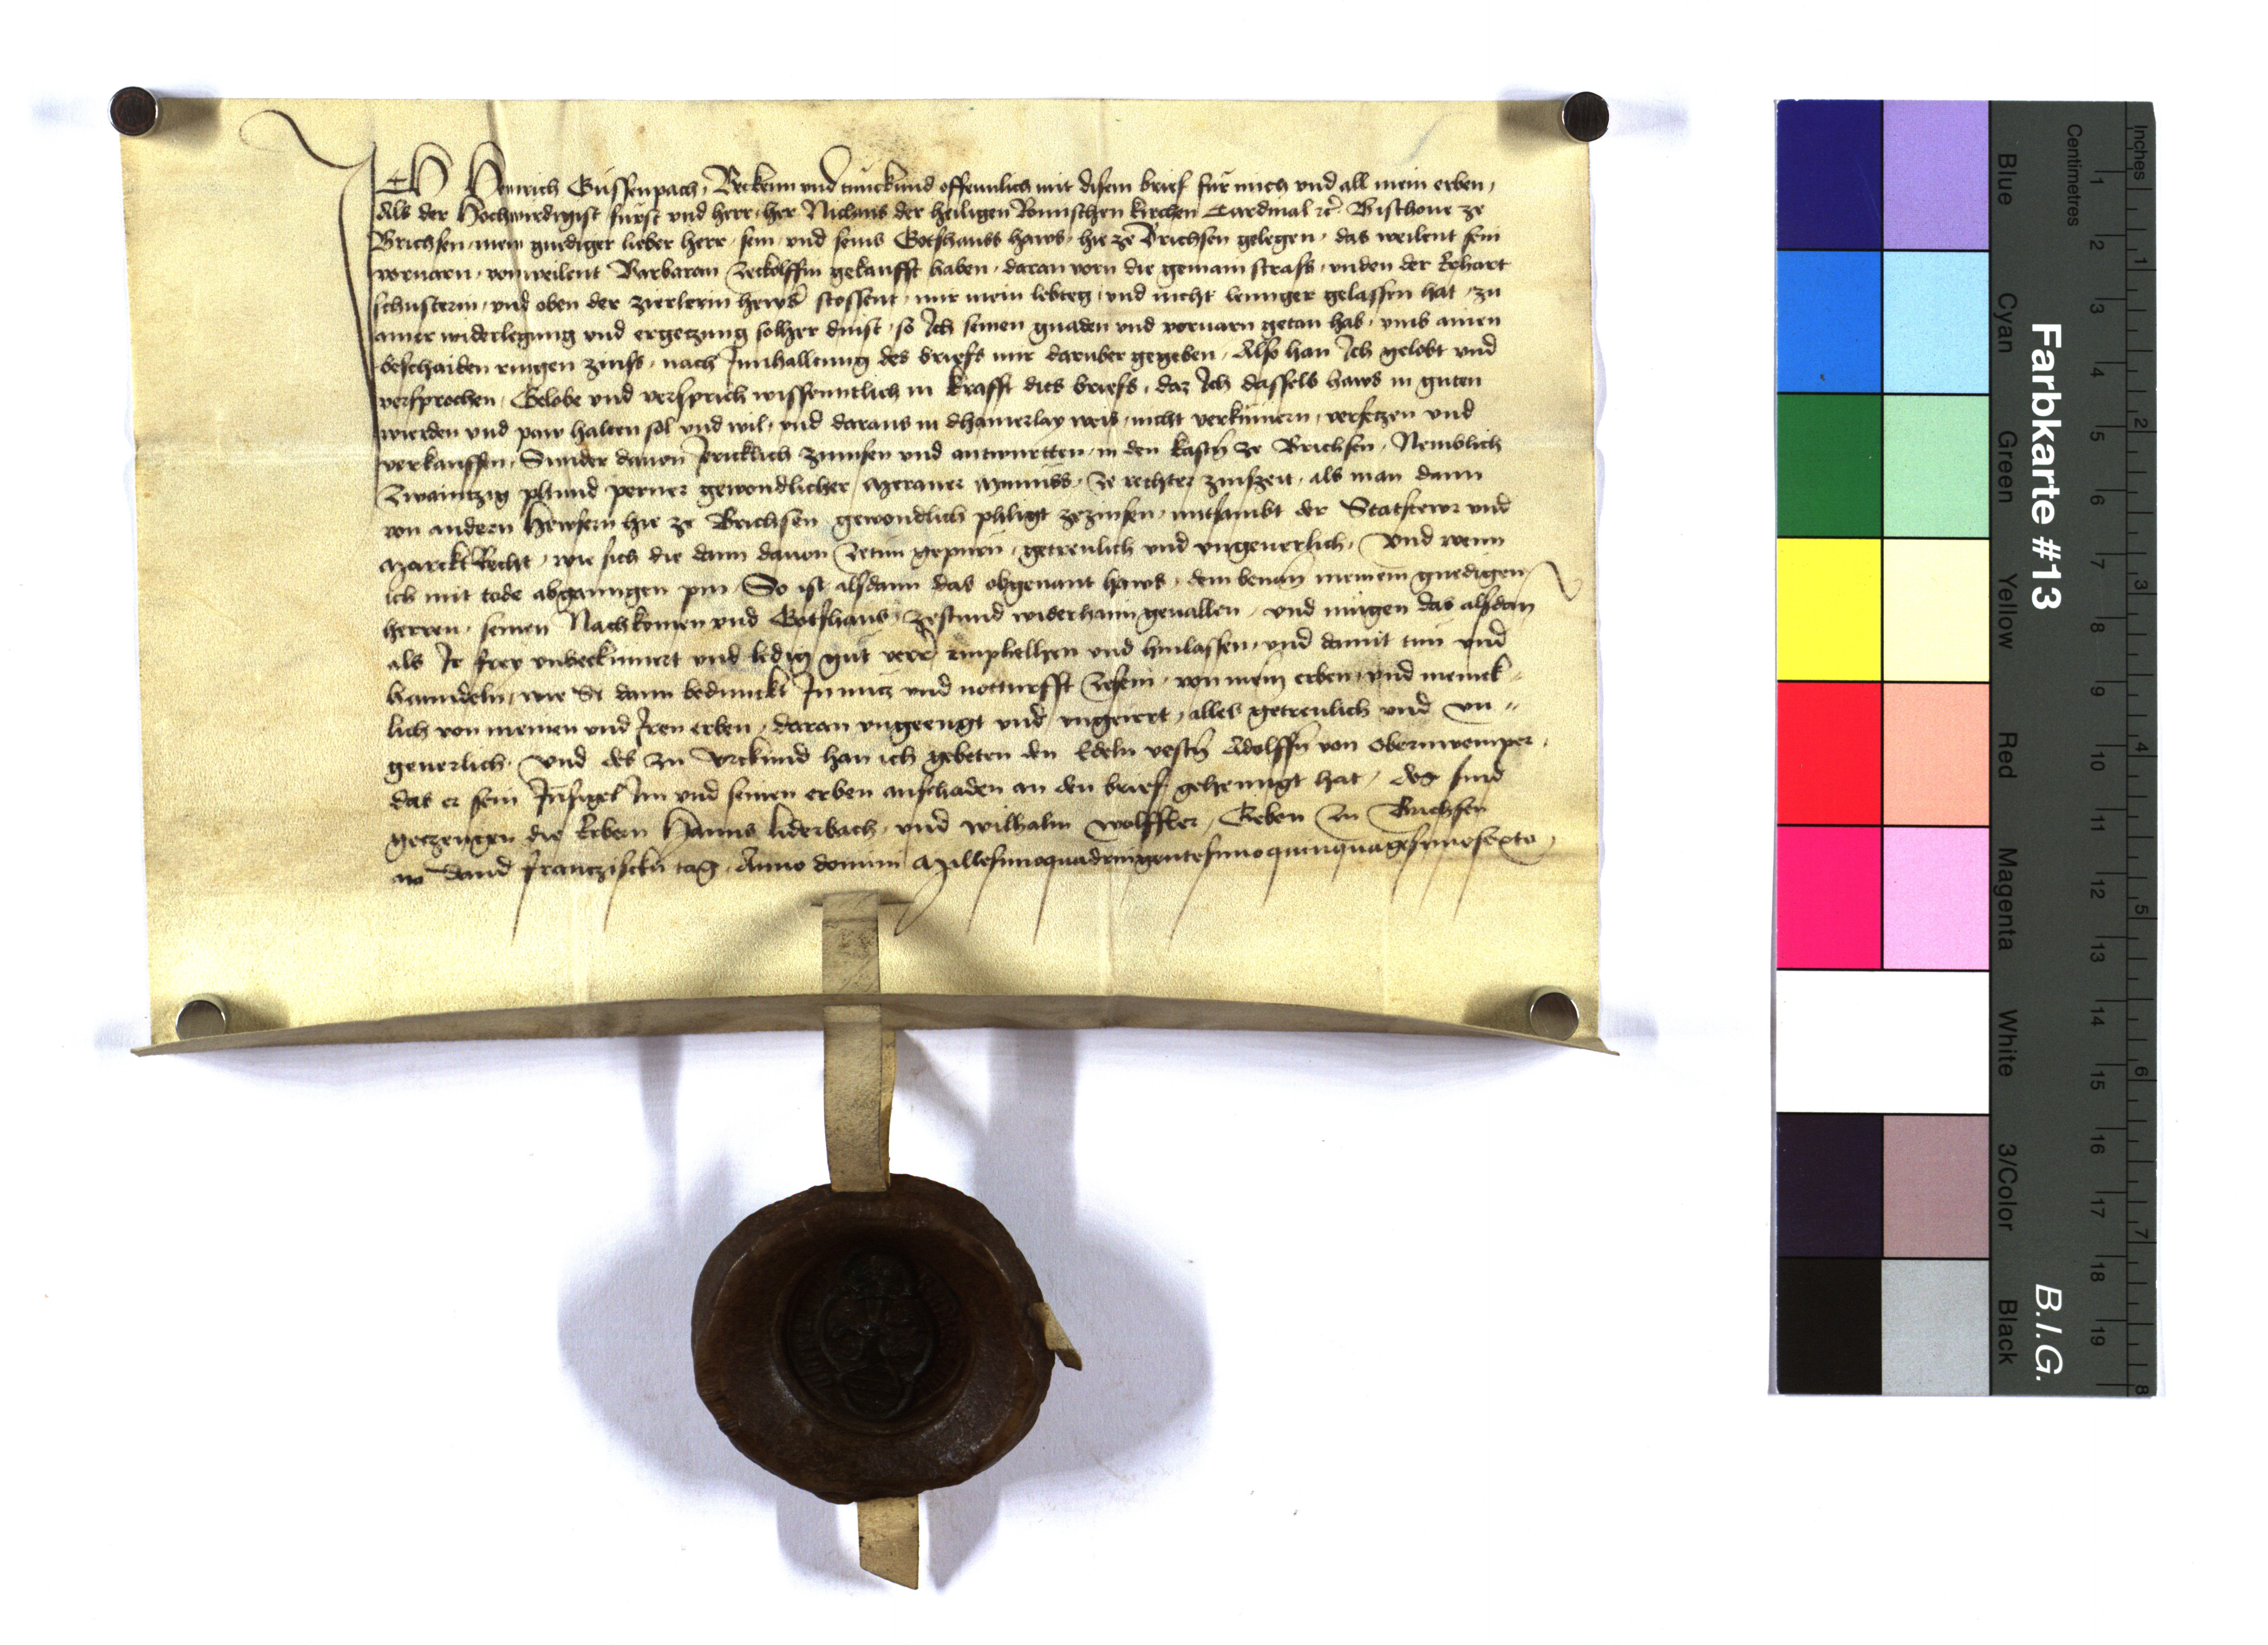 ICH Heinrich Güssenpach, Bekenn und tun kund offennlich mit disem brief für mich und all mein erben,
Als der Hochwirdigist fürst und herr, her Niclaus der heiligen Römischen kirchen Cardinal etc̃ Bischoue ze
Brichsen, mein gnediger lieber herr, sein, und seins Gotshauss haws, hie ze Brichsen gelegen, das weilent sein
voruarn, von weilent Barbaran Zeckolffin gekaufft haben, daran vorn die gemain strass, unden der Erhart
schusterin, und oben der Zierlerin hewsr̃ stossent, mir mein lebteg, und nicht lennger gelassen hat, zu
ainer widerlegung und ergetzung solher dinst, so Ich seinen gnaden und voruarn getan hab, umb ainen
beschaiden ringen zinss, nach Innhalltung des briefs mir daruber gegeben, Also han Ich gelobt und
versprochen, Gelobe und versprich wissenntlich in krafft dits briefs, daz Ich dasselb haws in guten
wirden und paw halten sol und wil, und daraus in dhainerlay weis, nicht verkumern, versetzen und
verkauffen, Sunder dauon Jericklich zinnsen und antwurtten, in den kastñ ze Brichsen, Nemblich
Zwaintzig phund perner gewondlicher Meraner Münnss, ze rechter zinszeit, als man dann
von andern Hewsern hie ze Brichsen gewondlich phligt zezinsen, mitsambt der Statstewr und
Marckt Recht, wie sich die dann dauon zetun gepurn, getreulich und ungeuerlich, Und wenn
ich mit tode abgangen pin, So ist alsdann das obgenant haws, dem benañ meinem gnedigen
herren, seinen Nachkomen und Gotshaus, zestund widerhaim geuallen, und mügen das alsdan
als Ir frey unbeckumert und ledig gut verr̃ emphelhen und hinlassen, und damit tun und
hanndeln, wie Si dann bedunckt In nutz und notturfft zesein, von mein erben, und menick-
lich von meinen und Iren erben, daran ungeengt und ungeiert, alles getreulich und un-
geuerlich. Und des zu Urckund han ich gebeten den Edeln vestñ Adolffñ von Obernwemper,
das er sein Insigel Im und seinen erben anschaden an den brief gehenngt hat, des sind
gezeugen die Erbern Hanns liderbach, und wilhalm wolffler, Geben zu Brichsen
an Sand franczisckñ tag, Anno domini Millesimoquadringentesimoquinquagesimosexto.
Farbkarte #13
B.I.G.
Centimetres
Inches
Blue
Cyan
Green
Yellow
Red
Magenta
White
3/Color
Black
1 2 3 4 5 6 7 8 9 10 11 12 13 14 15 16 17 18 19
1 2 3 4 5 6 7 8